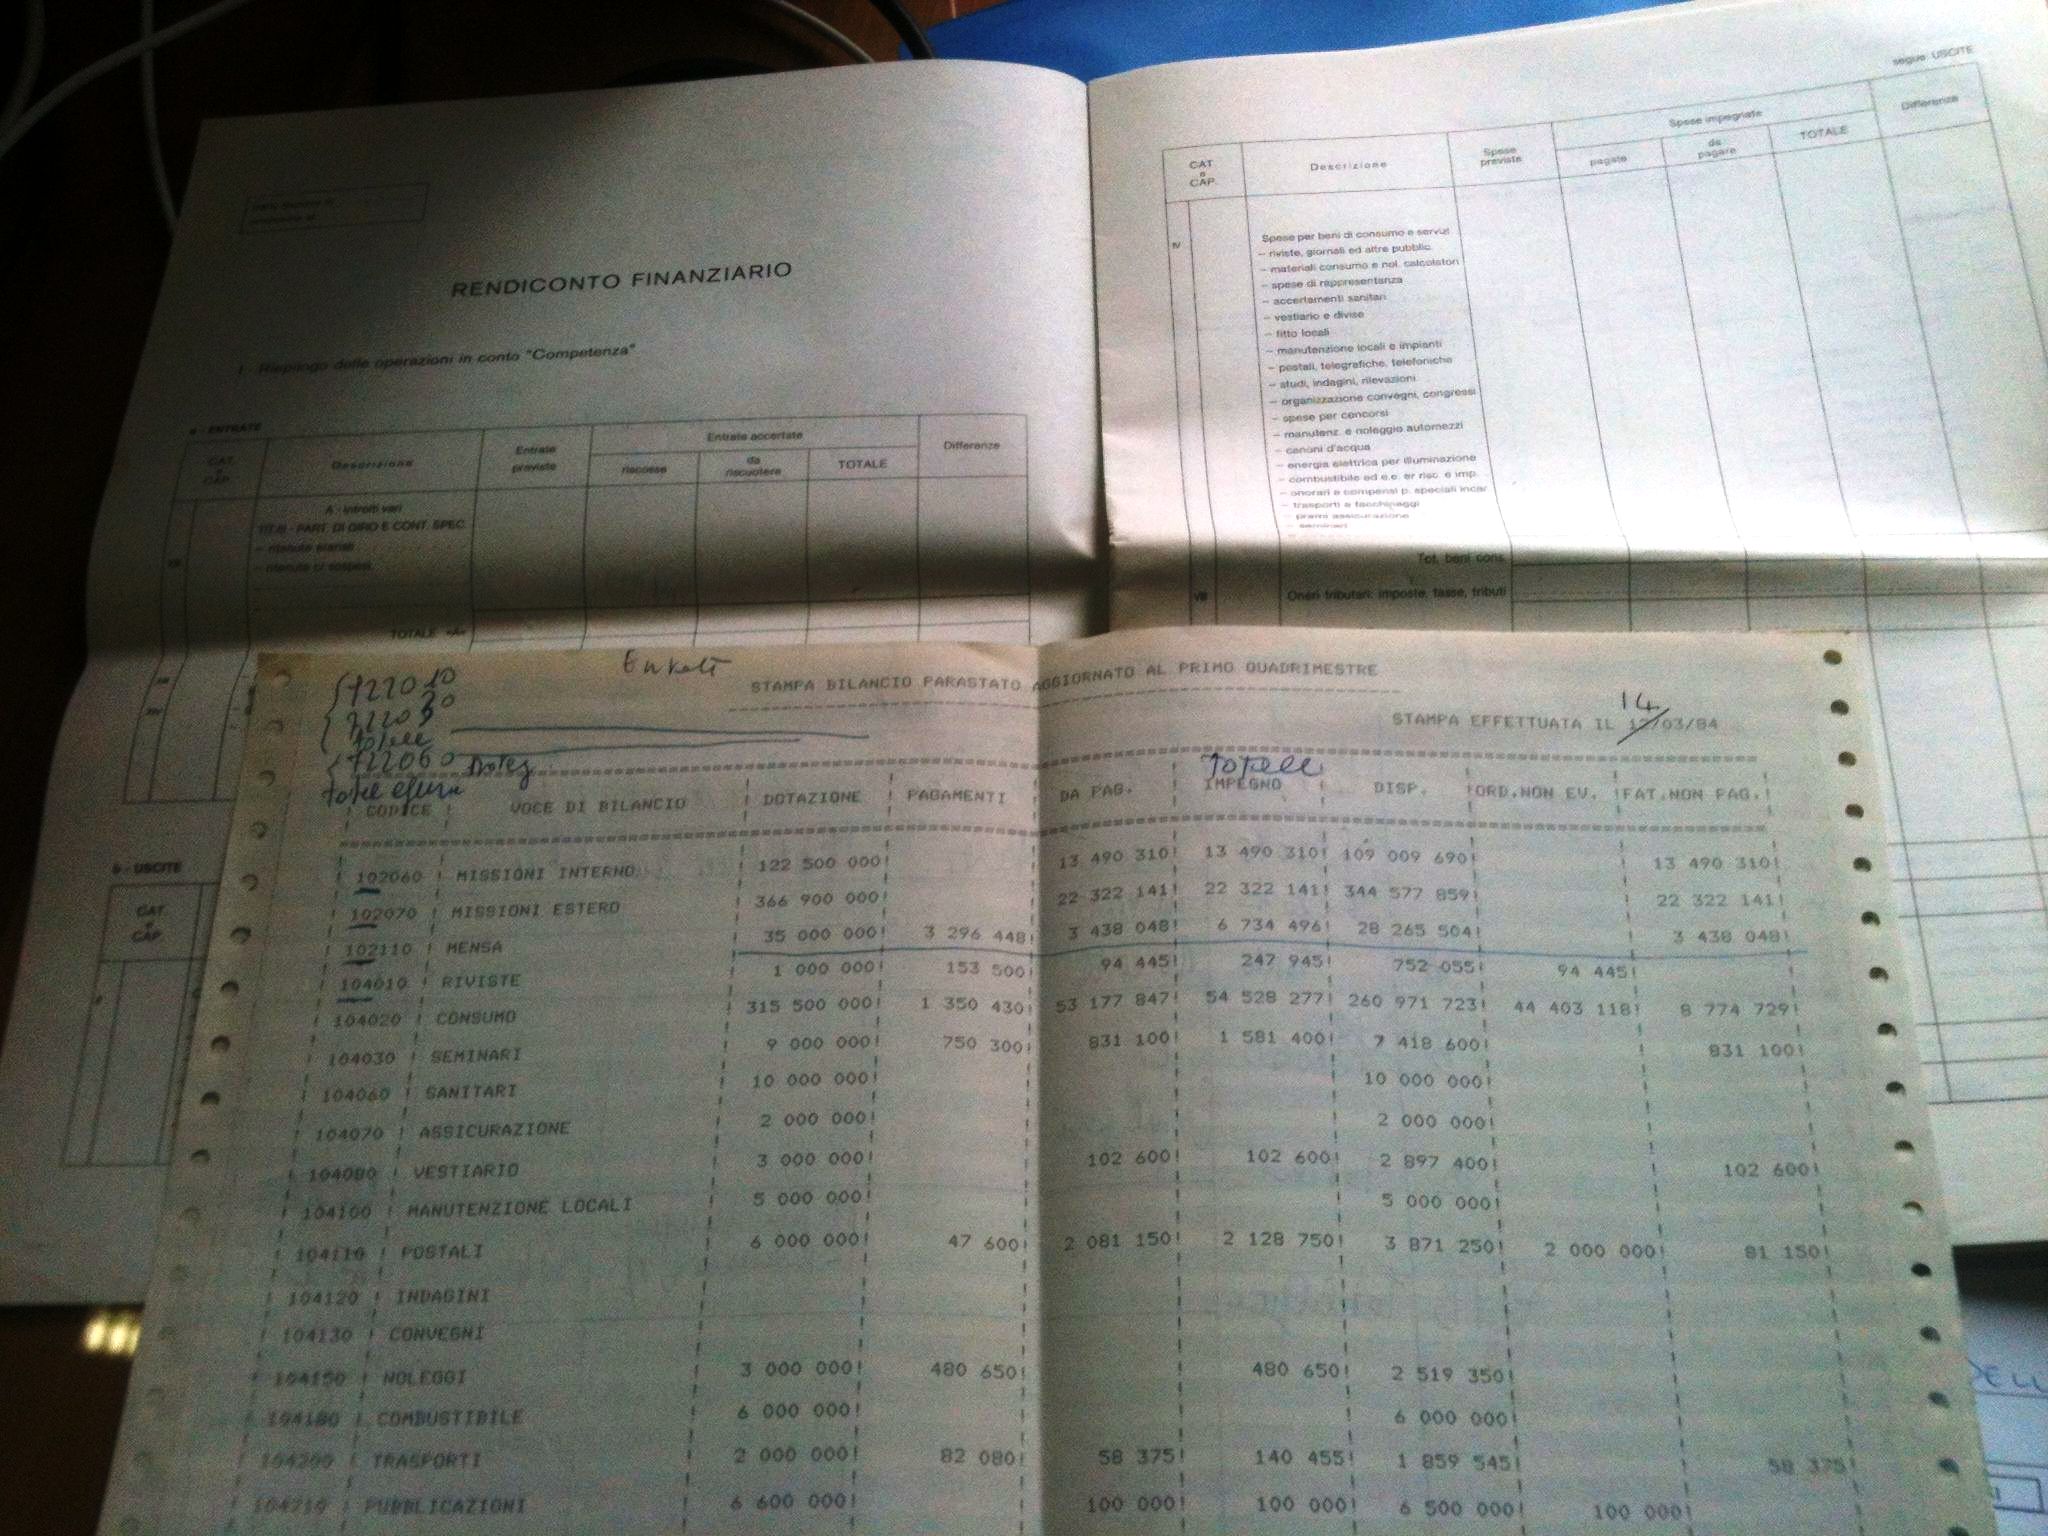 RENDICONTO FINANZIARIO
I - Riepilogo delle operazioni in conto "Competenza"
a - ENTRATE
CAT. e CAP. Descrizione Entrate previste Entrate accertate riscosse da riscuotere TOTALE Differenze
A - Introiti vari
TIT.III - PART. DI GIRO E CONT. SPEC.
– ritenute erariali
TOTALE «A»
b - USCITE
CAT. e CAP.
segue: USCITE
CAT. e CAP. Descrizione Spese previste Spese impegnate pagate da pagare TOTALE Differenze
IV
Spese per beni di consumo e servizi
– riviste, giornali ed altre pubblic.
– materiali consumo e nol. calcolatori
– spese di rappresentanza
– accertamenti sanitari
– vestiario e divise
– fitto locali
– manutenzione locali e impianti
– postali, telegrafiche, telefoniche
– studi, indagini, rilevazioni
– organizzazione convegni, congressi
– spese per concorsi
– manutenz. e noleggio automezzi
– canoni d'acqua
– energia elettrica per illuminazione
– combustibile ed e.e. er risc. e imp.
– onorari e compensi p. speciali incar
– trasporti e facchinaggi
– premi assicurazione
– seminari
Tot. beni cons.
VIII Oneri tributari: imposte, tasse, tributi
722010
722060
STAMPA BILANCIO PARASTATO AGGIORNATO AL PRIMO QUADRIMESTRE
14
STAMPA EFFETTUATA IL 12/03/84
Totale
CODICE ! VOCE DI BILANCIO ! DOTAZIONE ! PAGAMENTI ! DA PAG. ! IMPEGNO ! DISP. !ORD.NON EV. !FAT.NON PAG.!
102060 ! MISSIONI INTERNO ! 122 500 000! 13 490 310! 13 490 310! 109 009 690! 13 490 310!
102070 ! MISSIONI ESTERO ! 366 900 000! 22 322 141! 22 322 141! 344 577 859! 22 322 141!
102110 ! MENSA ! 35 000 000! 3 296 448! 3 438 048! 6 734 496! 28 265 504! 3 438 048!
104010 ! RIVISTE ! 1 000 000! 153 500! 94 445! 247 945! 752 055! 94 445!
104020 ! CONSUMO ! 315 500 000! 1 350 430! 53 177 847! 54 528 277! 260 971 723! 44 403 118! 8 774 729!
104030 ! SEMINARI ! 9 000 000! 750 300! 831 100! 1 581 400! 7 418 600! 831 100!
104060 ! SANITARI ! 10 000 000! 10 000 000!
104070 ! ASSICURAZIONE ! 2 000 000! 2 000 000!
104080 ! VESTIARIO ! 3 000 000! 102 600! 102 600! 2 897 400! 102 600!
104100 ! MANUTENZIONE LOCALI ! 5 000 000! 5 000 000!
104110 ! POSTALI ! 6 000 000! 47 600! 2 081 150! 2 128 750! 3 871 250! 2 000 000! 81 150!
104120 ! INDAGINI
104130 ! CONVEGNI
104150 ! NOLEGGI ! 3 000 000! 480 650! 480 650! 2 519 350!
104180 ! COMBUSTIBILE ! 6 000 000! 6 000 000!
104200 ! TRASPORTI ! 2 000 000! 82 080! 58 375! 140 455! 1 859 545! 58 375!
104210 ! PUBBLICAZIONI ! 6 600 000! 100 000! 100 000! 6 500 000! 100 000!